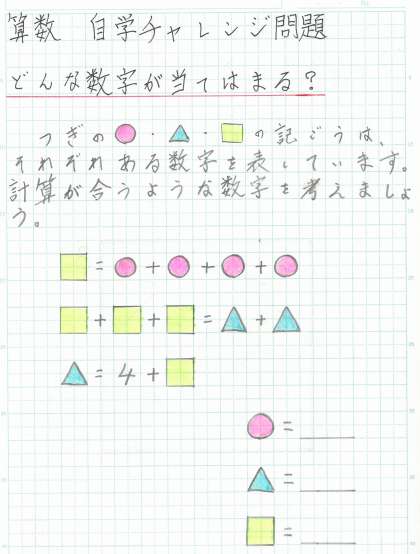 算数　自学チャレンジ問題
どんな数字が当てはまる？
つぎの●・▲・■の記ごうは、
それぞれある数字を表しています。
計算が合うような数字を考えましょ
う。
■=●+●+●+●
■+■+■=▲+▲
▲=4+■
●=
▲=
■=